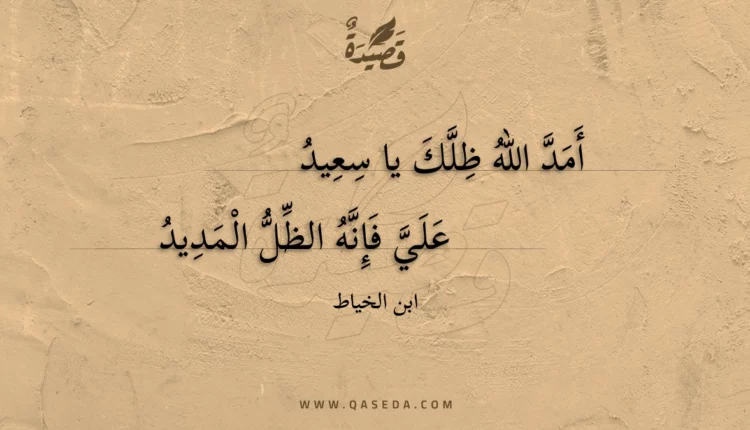 قَصِيدَةٌ
أَمَدَّ اللهُ ظِلَّكَ يا سِعِيدُ
عَلَيَّ فَإِنَّهُ الظِّلُّ الْمَدِيدُ
ابن الخياط
WWW.QASEDA.COM